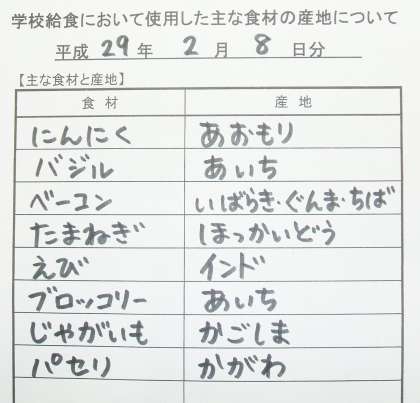 学校給食において使用した主な食材の産地について
平成 29 年 2 月 8 日分
【主な食材と産地】
食材 産地
にんにく あおもり
バジル あいち
ベーコン いばらき・ぐんま・ちば
たまねぎ ほっかいどう
えび インド
ブロッコリー あいち
じゃがいも かごしま
パセリ かがわ